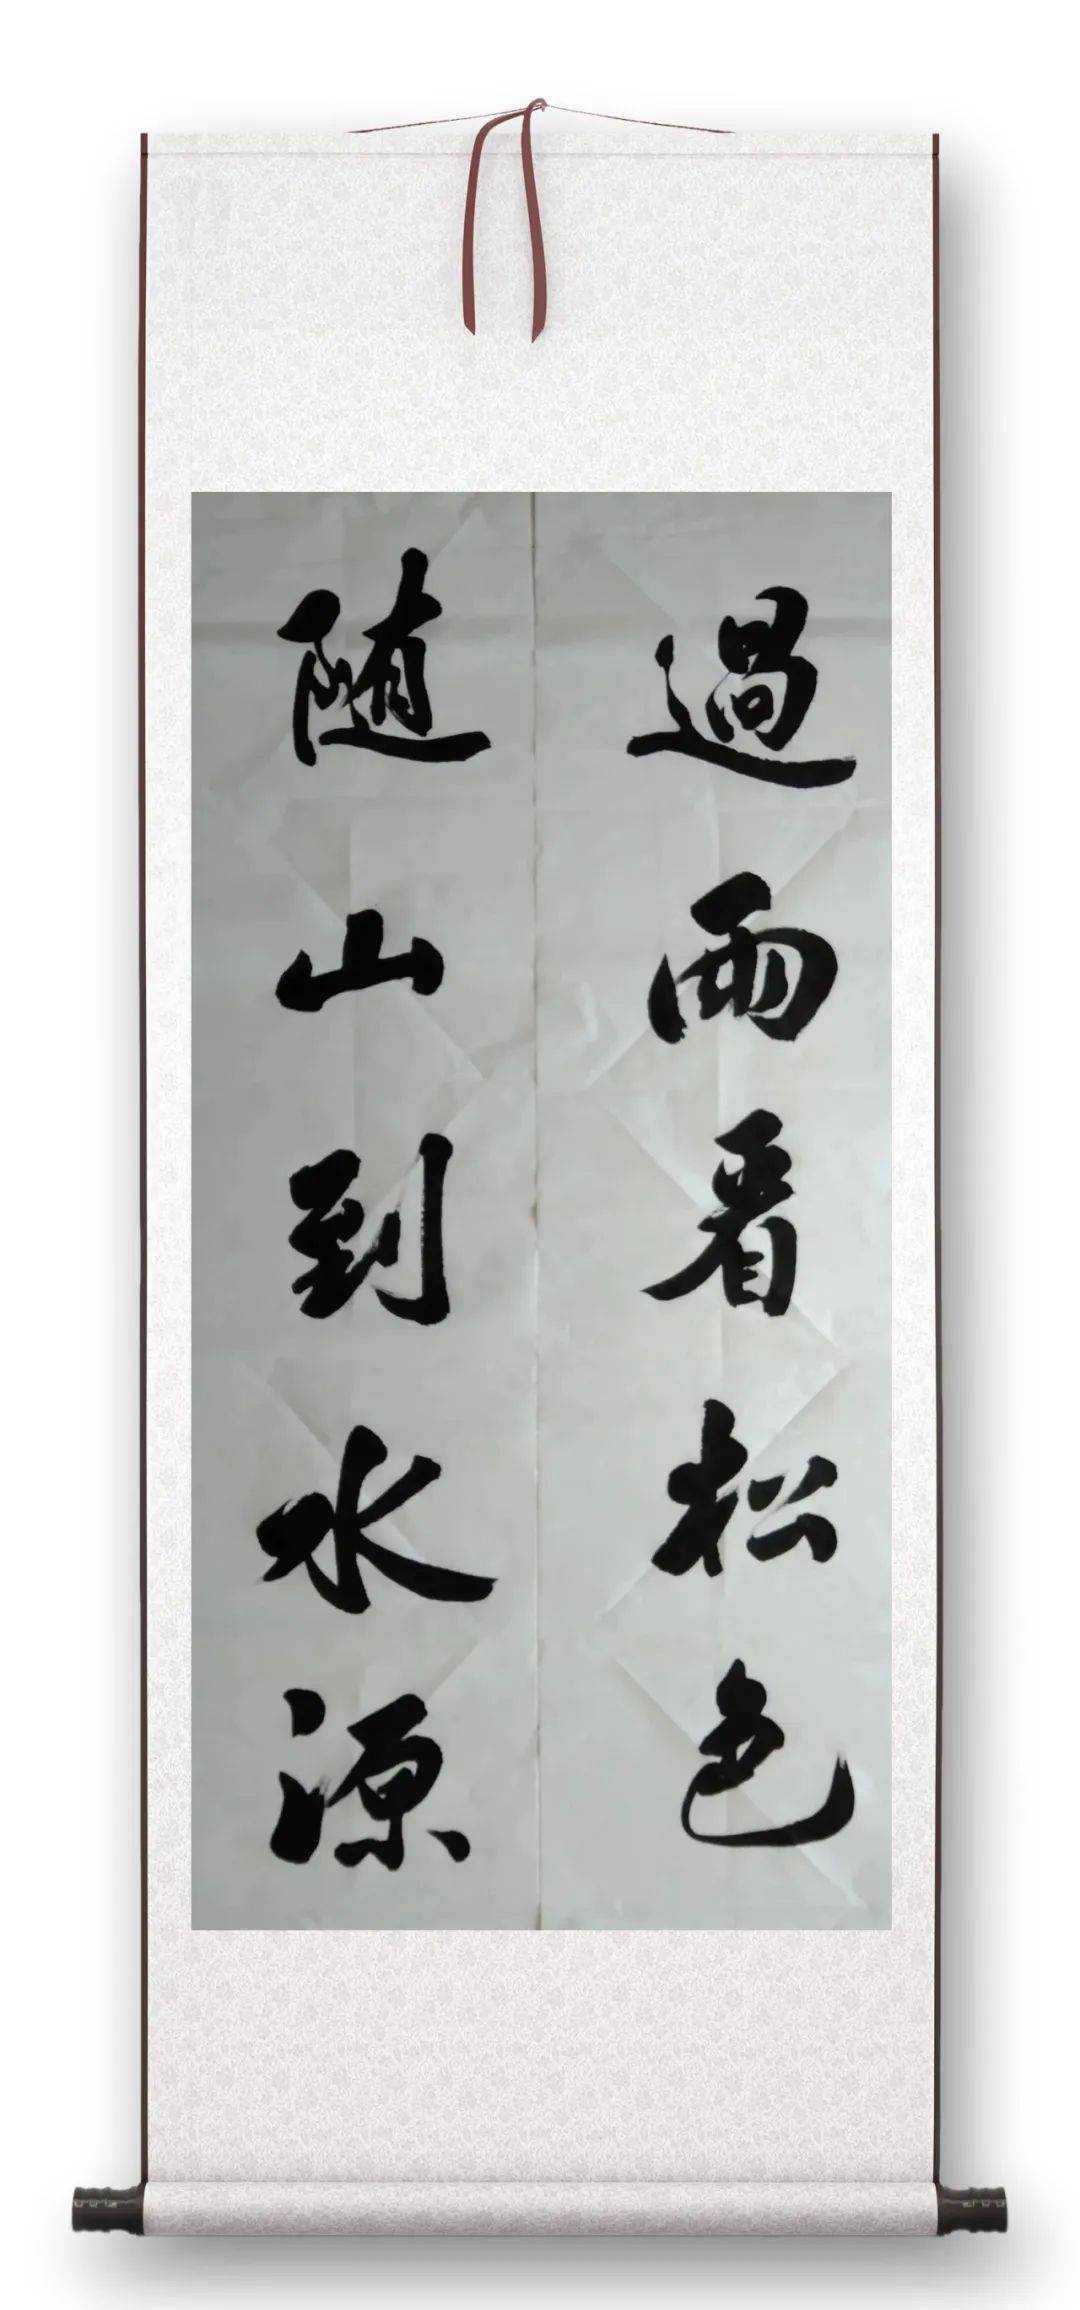 過雨看松色
随山到水源